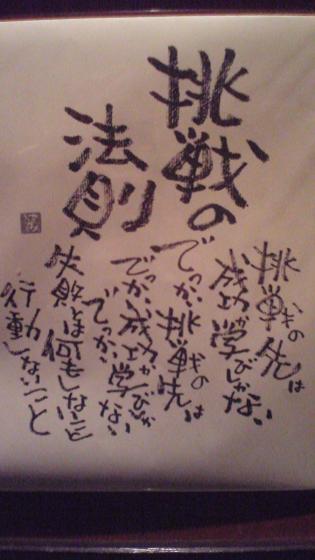 挑戦の
法則
挑戦の先は
成功か学びしかない
でっかい挑戦の先は
でっかい成功か
でっかい学びしかない
失敗とは何もしないこと
行動しないこと